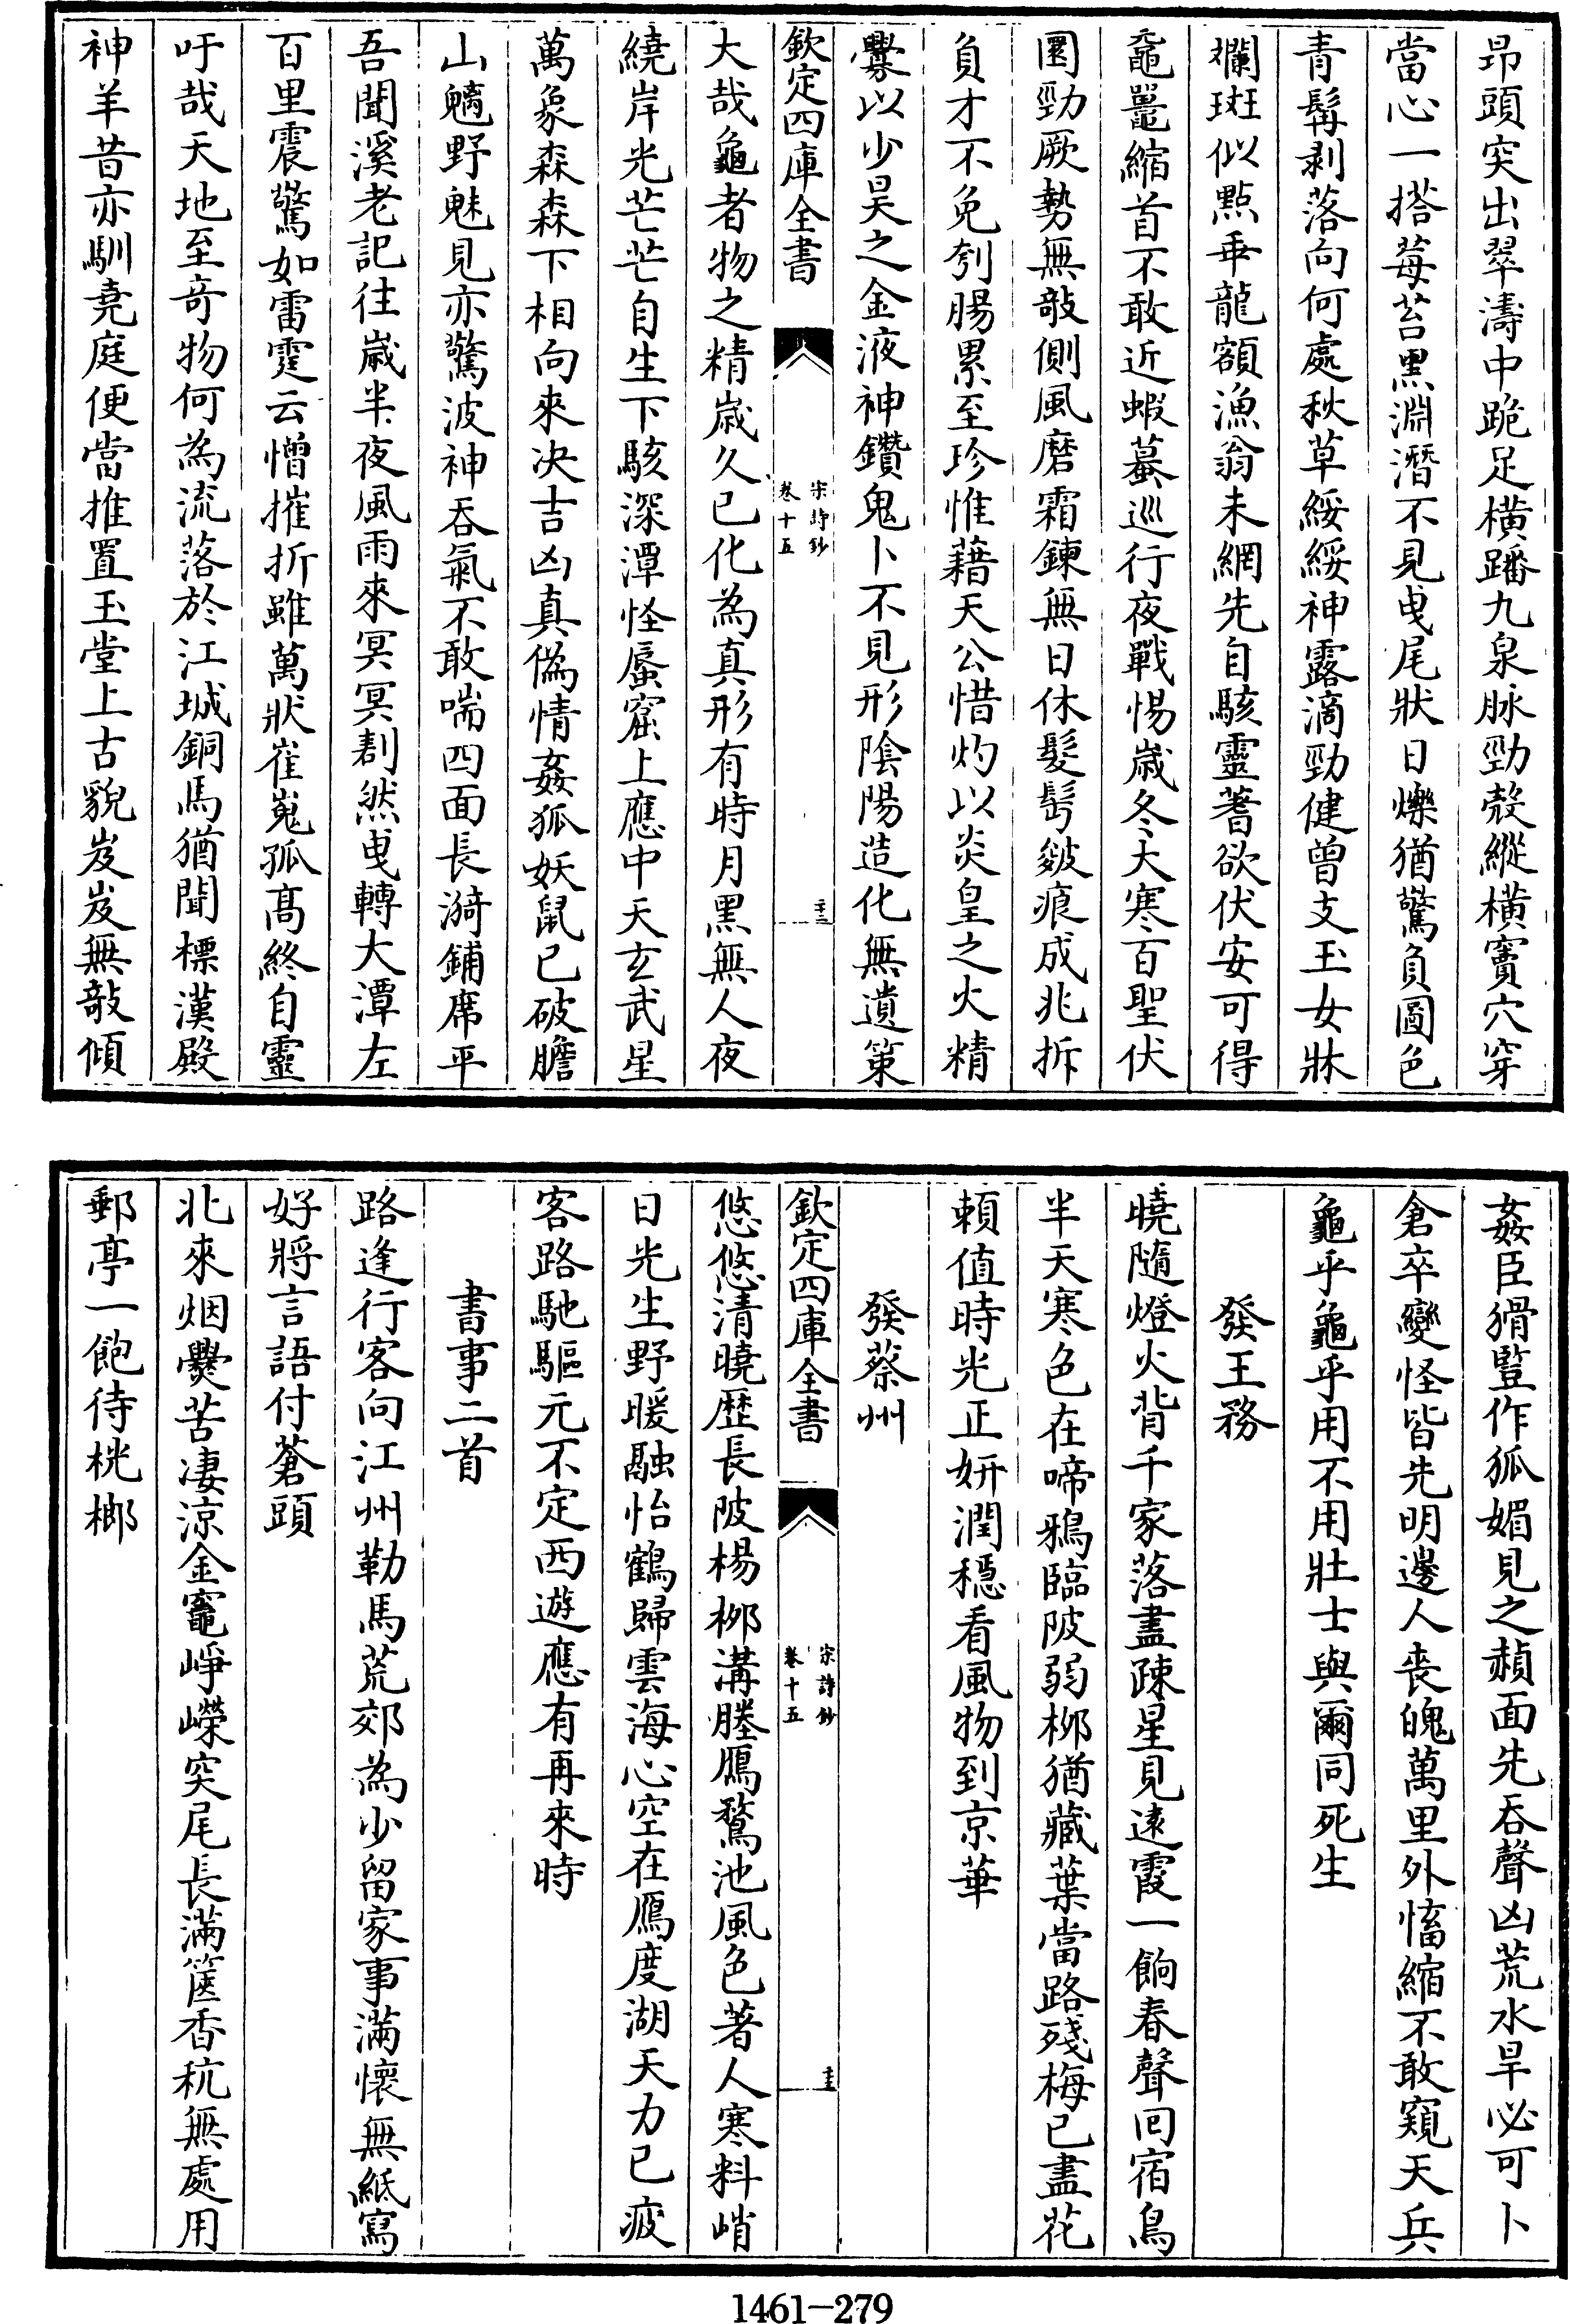 昂頭突出翠濤中跪足橫蹯九泉脉勁殻縱橫竇穴穿
當心一搭莓苔黒淵潛不見曳尾狀日爍猶驚負圖色
青髯剥落向何處秋草綏綏神露滴勁健曾支玉女牀
斕斑似㸃垂龍額漁翁未網先自駭靈蓍欲伏安可得
黿鼉縮首不敢近蝦蟇巡行夜戰惕歲冬大寒百聖伏
圜勁厥勢無敧側風磨霜鍊無日休髮髣皴痕成兆拆
負才不免刳腸累至珍惟藉天公惜灼以炎皇之火精
釁以少昊之金液神鑽鬼卜不見形陰陽造化無遺策
欽定四庫全書
宋詩鈔
卷十五
大哉龜者物之精歲久已化為真形有時月黑無人夜
繞岸光芒芒自生下駭深潭怪蜃窟上應中天玄武星
萬象森森下相向來决吉凶真偽情姦狐妖鼠已破膽
山魑野魅見亦驚波神吞氣不敢喘四面長漪鋪席平
吾聞溪老記往嵗半夜風雨來冥冥劃然曵轉大潭左
百里震驚如雷霆云憎摧折雖萬狀崔嵬孤髙終自靈
吁哉天地至奇物何為流落於江城銅馬猶聞標漢殿
神羊昔亦馴堯庭便當推置玉堂上古貌岌岌無敧傾
姦臣猾豎作狐媚見之赬面先吞聲凶荒水旱必可卜
倉卒變怪皆先明邊人喪魄萬里外慉縮不敢窺天兵
龜乎龜乎用不用壯士與爾同死生
發王務
曉隨燈火背千家落盡疎星見逺霞一餉春聲囘宿鳥
半天寒色在啼鴉臨陂弱栁猶藏葉當路殘梅已盡花
頼值時光正妍潤穩看風物到京華
發蔡州
欽定四庫全書
宋詩鈔
卷十五
悠悠清曉歴長陂楊栁溝塍鴈鶩池風色著人寒料峭
日光生野暖融怡鶴歸雲海心空在鴈度湖天力已疲
客路馳驅元不定西遊應有再來時
書事二首
路逢行客向江州勒馬荒郊為少留家事滿懷無紙寫
好將言語付蒼頭
北來烟爨苦凄涼金竈崢嶸突尾長滿篋香秔無處用
郵亭一飽待桄榔
1461—279